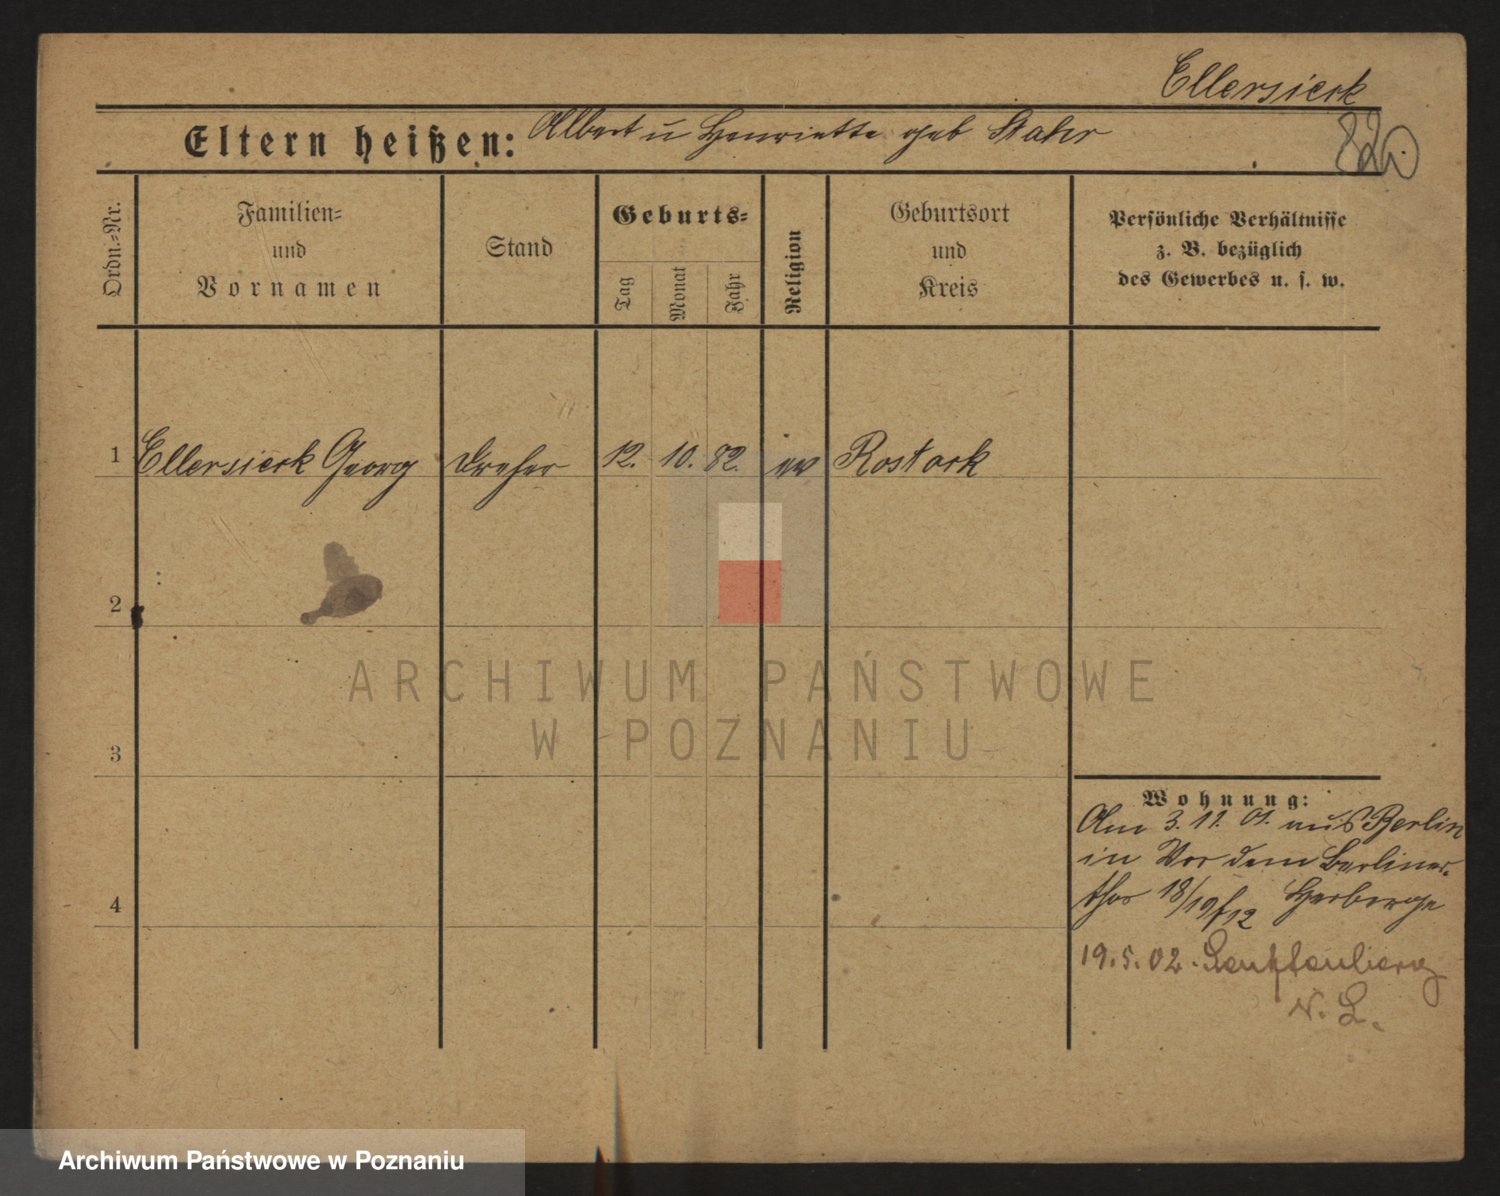 Ellersieck
Eltern heißen: Albert u Henriette geb Stahr
82
Ordn.=Nr.
Familien=
und
Vornamen
Stand
Geburts=
Tag
Monat
Jahr
Religion
Geburtsort
und
Kreis
Persönliche Verhältnisse
z. B. bezüglich
des Gewerbes u. s. w.
1 Ellersieck Georg Dreher 12. 10. 82. ev Rostock
2
3
4
ARCHIWUM PAŃSTWOWE
W POZNANIU
Wohnung:
Am 3. 11. 01. aus Berlin
in Vor dem Berliner-
thor 18/19/12 Herberge
19.5.02. Senftenberg
N. L.
Archiwum Państwowe w Poznaniu